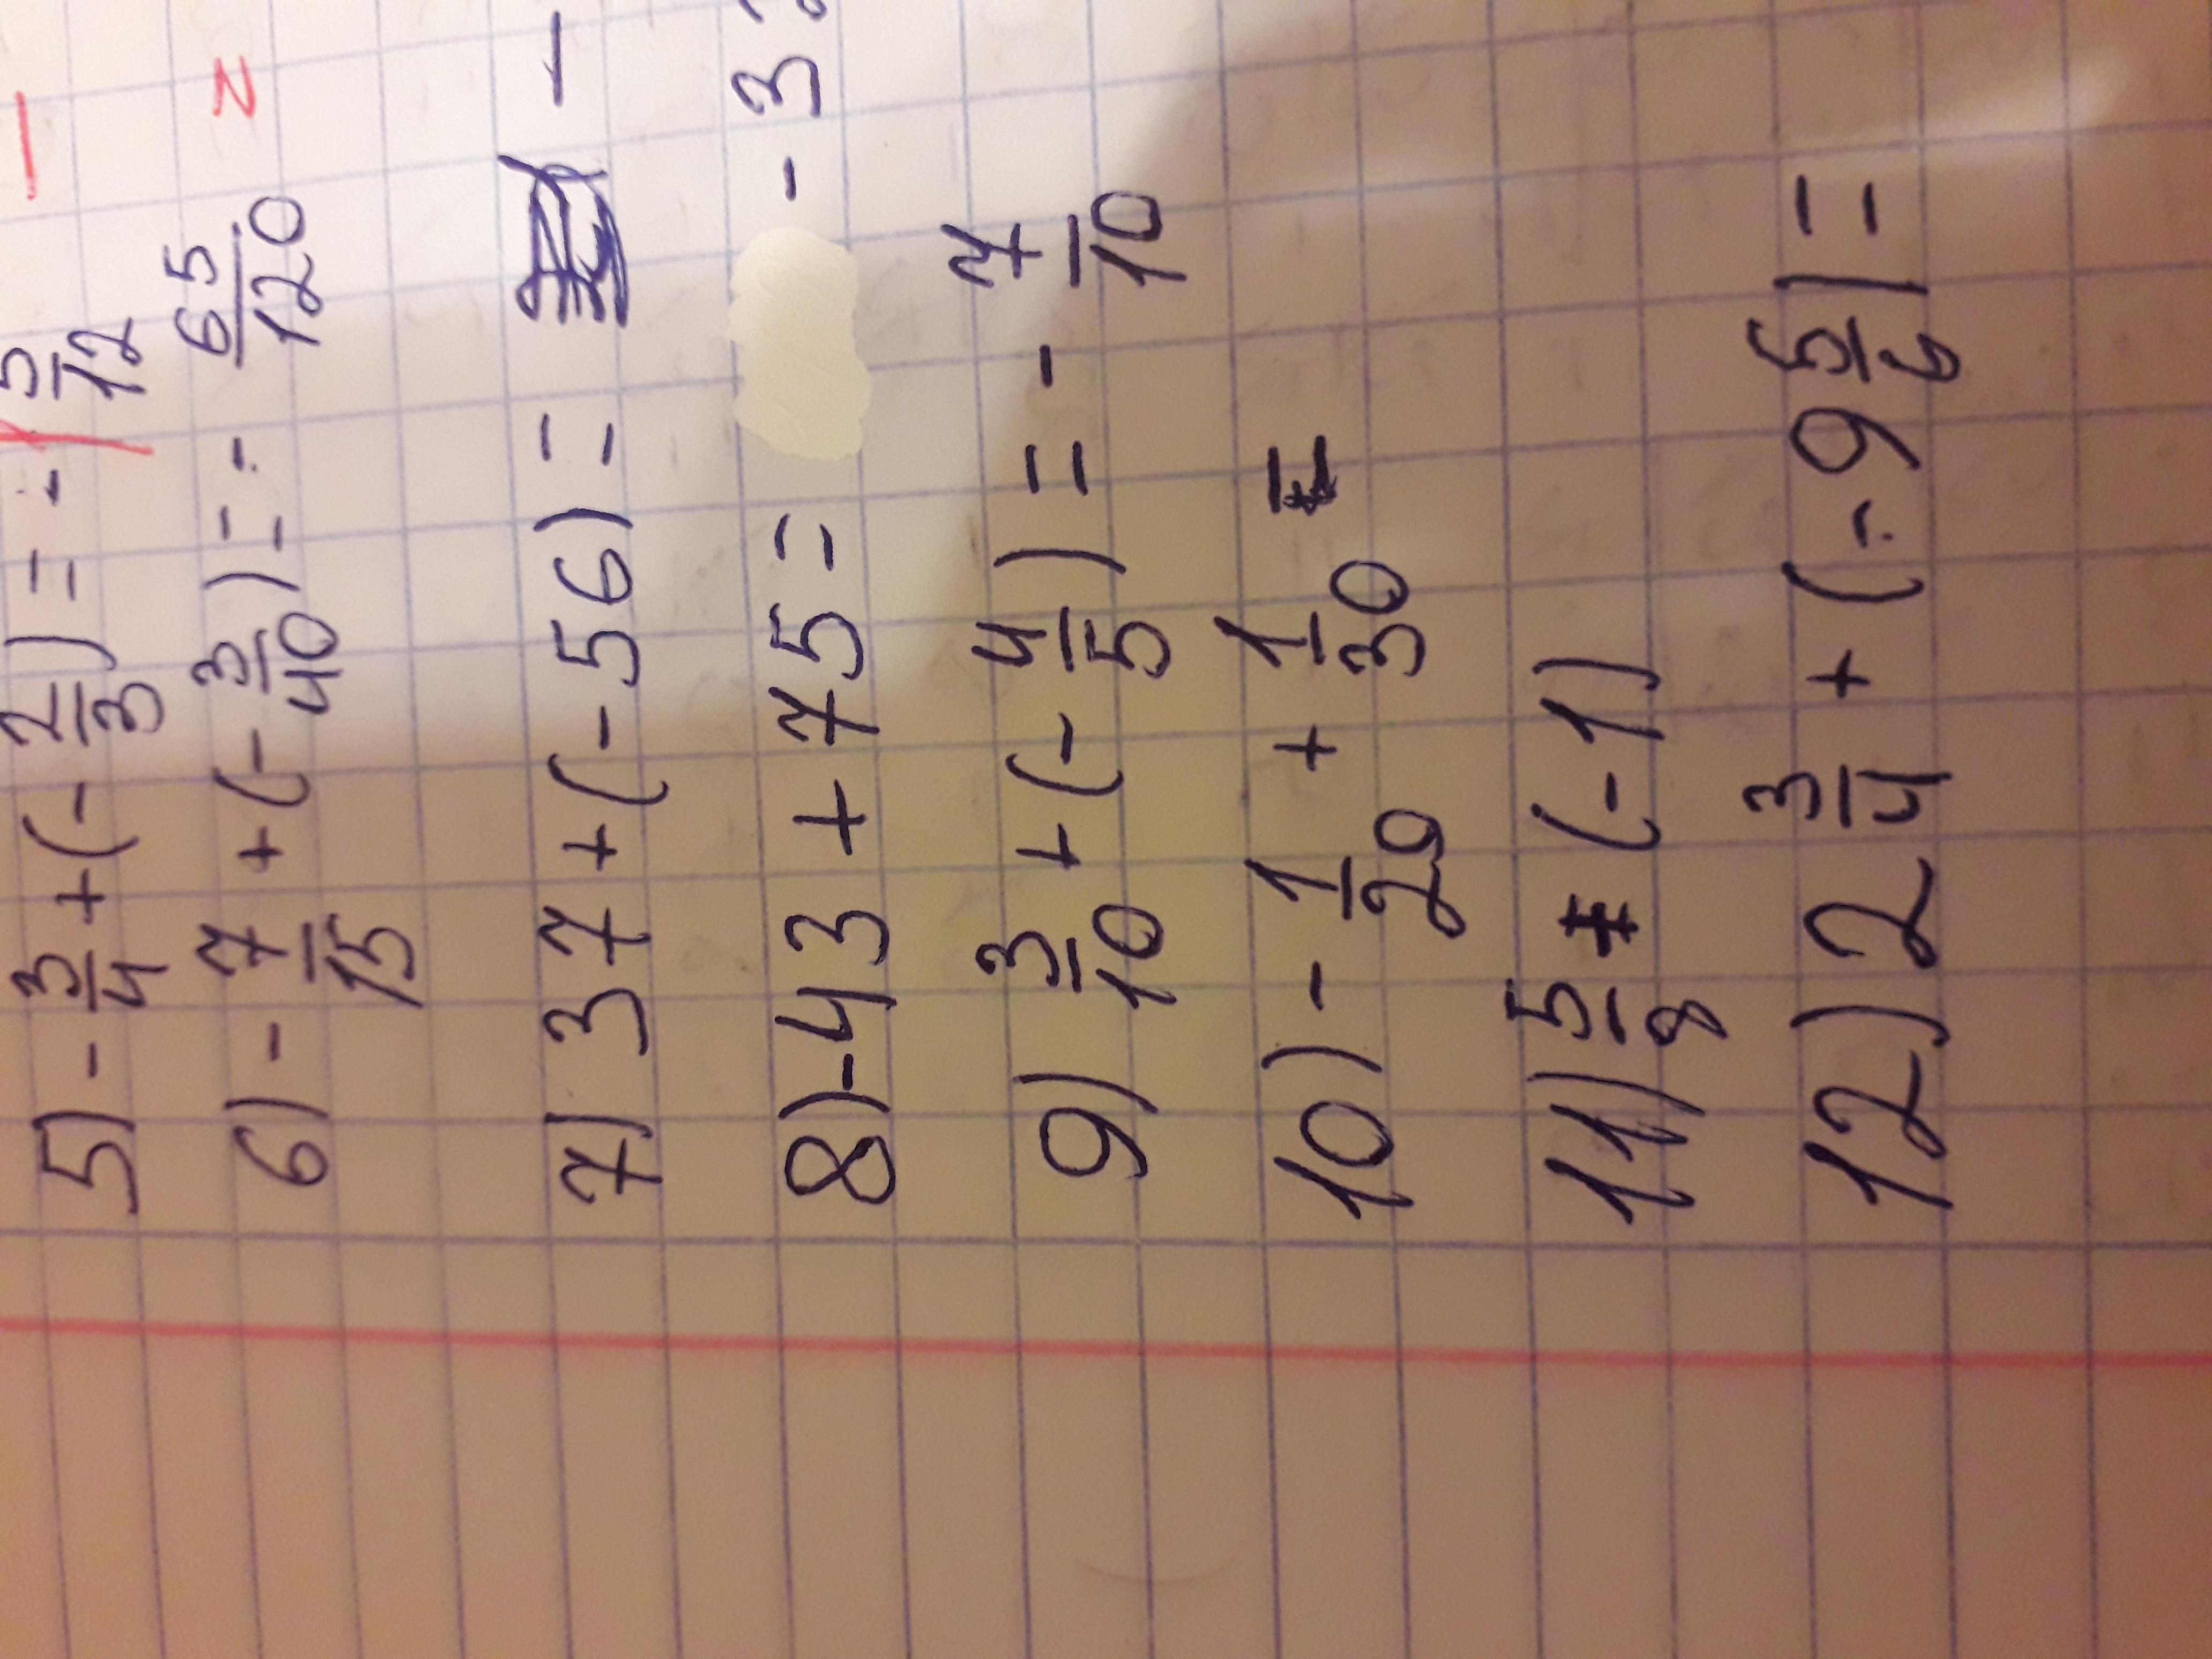 5) - 3/4 + (- 2/3) = - 5/12 -
6) - 7/15 + (- 3/40) = - 65/120 =
7) 37 + (- 56) = -
8) - 43 + 75 = - 3
9) 3/10 + (- 4/5) = - 7/10
10) - 1/20 + 1/30 =
11) 5/8 + (- 1)
12) 2 3/4 + (- 9 5/6) =